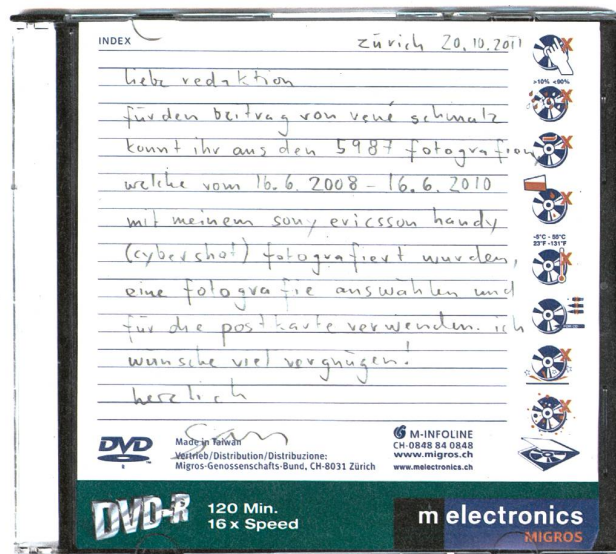 INDEX
zürich 20.10.2011
liebe redaktion
für den beitrag von rené schmalz
konnt ihr aus den 5987 fotografien,
welche vom 16.6.2008 - 16.6.2010
mit meinem sony ericsson handy
(cybershot) fotografiert wurden,
eine fotografie auswählen und
für die postkarte verwenden. ich
wünsche viel vergnügen!
herzlich
>10% <90%
-5°C - 55°C
23°F -131°F
DVD
R
Made in Taiwan
Vertrieb/Distribution/Distribuzione:
Migros-Genossenschafts-Bund, CH-8031 Zürich
M-INFOLINE
CH-0848 84 0848
www.migros.ch
www.melectronics.ch
DVD-R
120 Min.
16 x Speed
m electronics
MIGROS